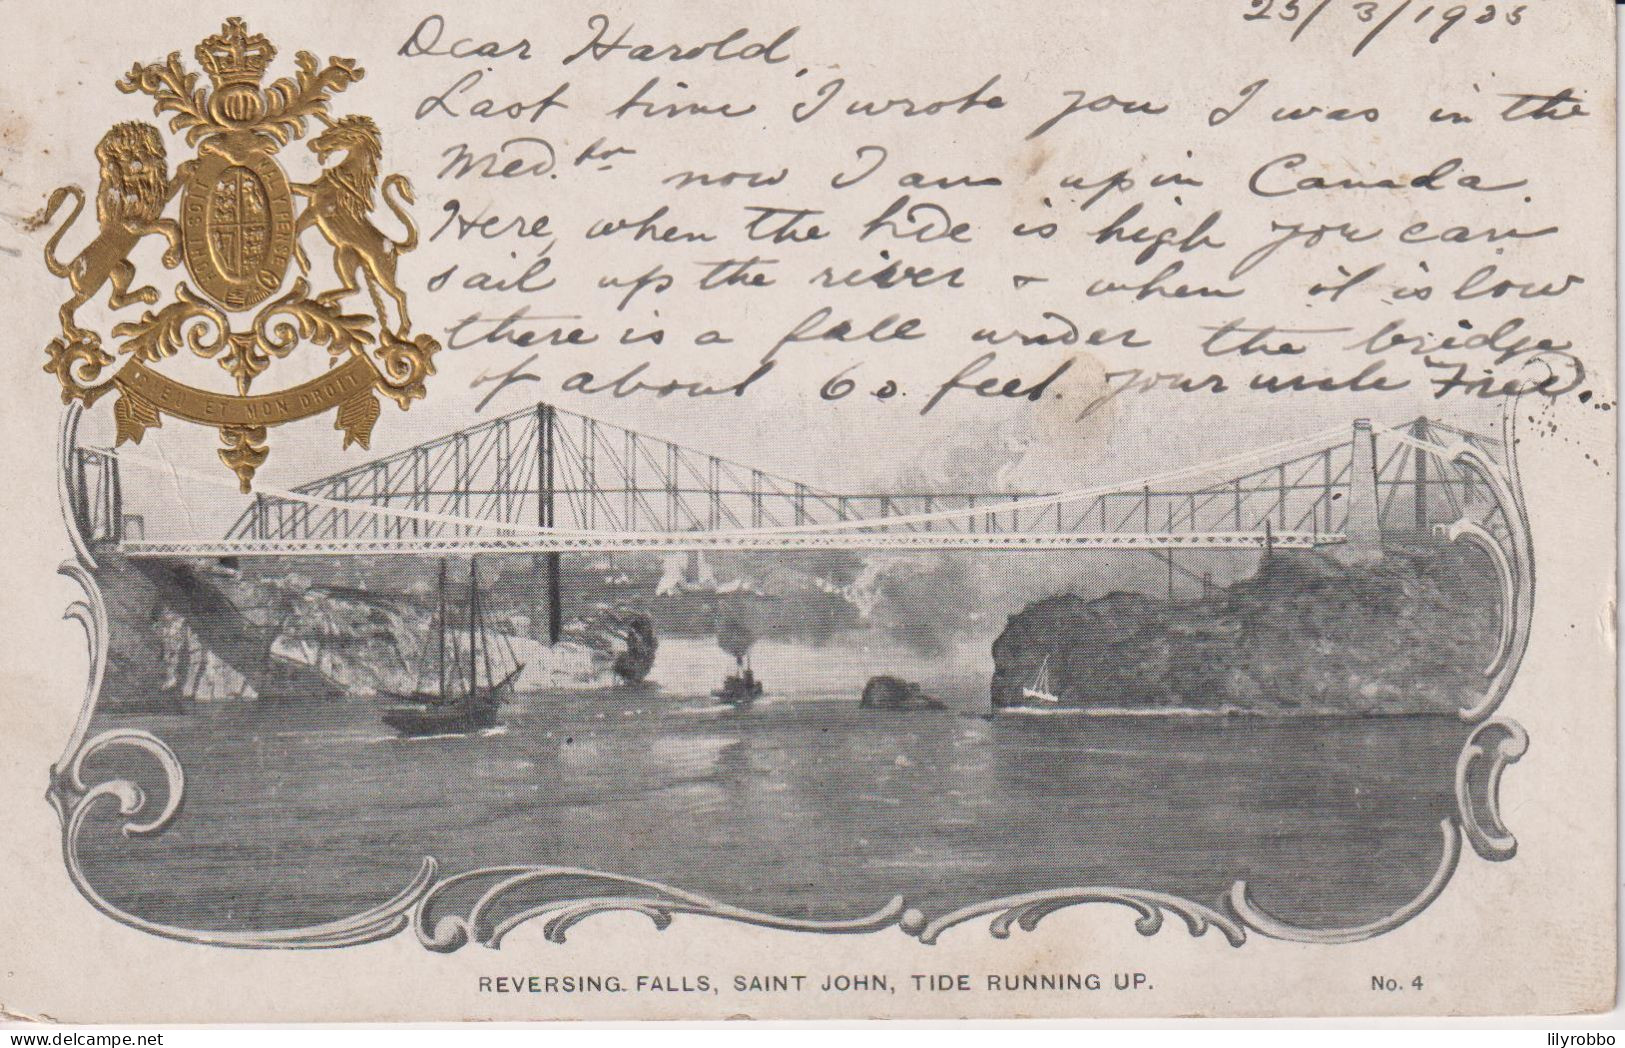 25/3/1905
Dear Harold,
Last time I wrote you I was in the
Med.
now I am up in Canada.
Here, when the tide is high you can
sail up the river & when it is low
there is a fall under the bridge
of about 60 feet. Your uncle Fred.
HONI SOIT QUI MAL Y PENSE
DIEU ET MON DROIT
REVERSING FALLS, SAINT JOHN, TIDE RUNNING UP.
No. 4
delcampe.net
lilyrobbo